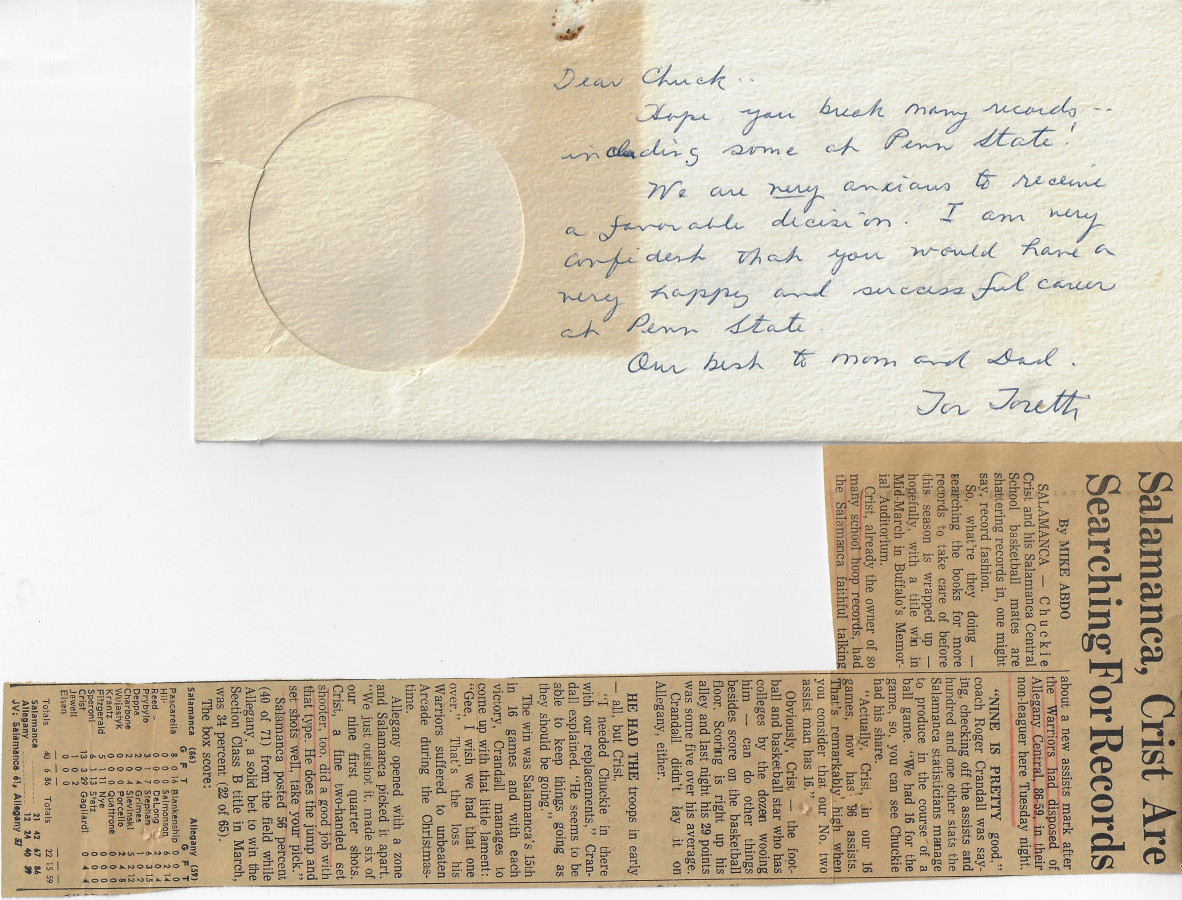 Dear Chuck --
Hope you break many records --
including some at Penn State!
We are very anxious to receive
a favorable decision. I am very
confident that you would have a
very happy and successful career
at Penn State.
Our best to Mom and Dad.
Tor Toretti
Salamanca, Crist Are
Searching For Records
By MIKE ABDO
SALAMANCA — Chuckie
Crist and his Salamanca Central
School basketball mates are
shattering records in, one might
say, record fashion.
So, what're they doing —
searching the books for more
records to take care of before
this season is wrapped up —
hopefully, with a title win in
Mid-March in Buffalo's Memor-
ial Auditorium.
Crist, already the owner of so
many school hoop records, had
the Salamanca faithful talking
about a new assists mark after
the Warriors had disposed of
Allegany Central, 86-59, in their
non-leaguer here Tuesday night.
"NINE IS PRETTY good,"
coach Roger Crandall was say-
ing, checking off the assists and
hundred and one other stats the
Salamanca statisticians manage
to produce in the course of a
ball game. "We had 16 for the
game, so, you can see Chuckie
had his share.
"Actually, Crist, in our 16
games, now has 96 assists.
That's remarkably high when
you consider that our No. two
assist man has 16."
Obviously, Crist — the foot-
ball and basketball star who has
colleges by the dozen wooing
him — can do other things
besides score on the basketball
floor. Scoring is right up his
alley and last night his 29 points
was some five over his average.
Crandall didn't lay it on
Allegany, either.
HE HAD THE troops in early
— all but Crist.
"I needed Chuckie in there
with our replacements," Cran-
dall explained. "He seems to be
able to keep things going as
they should be going."
The win was Salamanca's 15th
in 16 games and with each
victory, Crandall manages to
come up with that little lament:
"Gee, I wish we had that one
over." That's the loss his
Warriors suffered to unbeaten
Arcade during the Christmas-
time.
Allegany opened with a zone
and Salamanca picked it apart.
"We just outshot it, made six of
our nine first quarter shots.
Crist, a fine two-handed set
shooter too, did a good job with
that type. He does the jump and
set shots well, take your pick."
Salamanca posted 56 percent
(40 of 71) from the field while
Allegany, a solid bet to win the
Section Class B title in March
was 34 percent (22 of 65).
The box score:
Salamanca (86) Allegany (59)
G F T G F T
Pascarella Blankenship
Hill Salmonson
Reed DeLong
Prybylo Stephan
Deppo Grimes
Charbone Slavinski
Wujastyk Porcello
Krantz Quattrone
Fitzgerald Nye
Sporgni
Crist 13 3 29 Gagliardi
Jewell
Eisen
Totals 40 6 86 Totals 22 15 59
Salamanca 21 42 67 86
Allegany 12 24 40 59
JV: Salamanca 61, Allegany 37